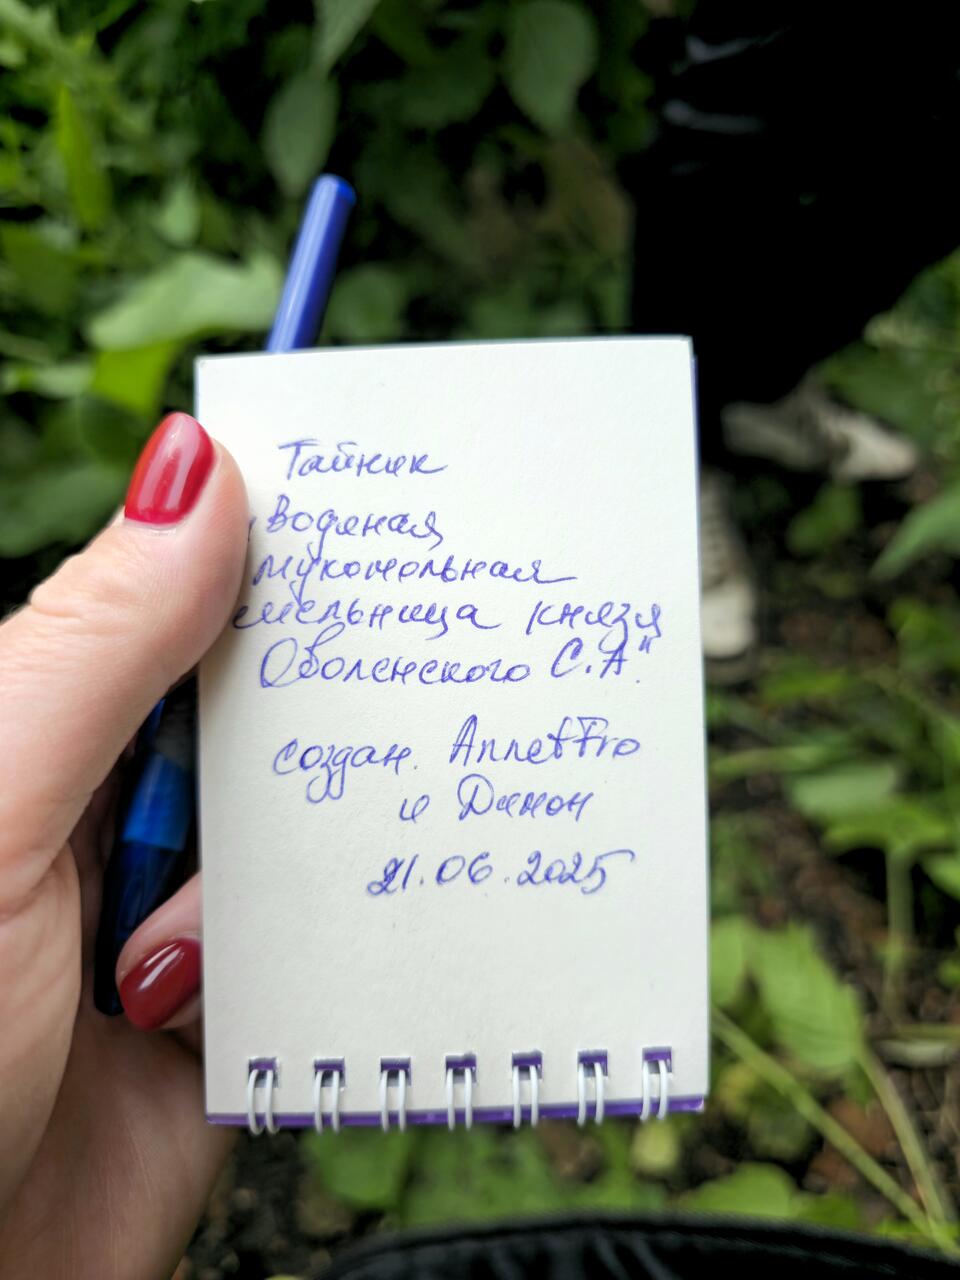 Тайник
„Водяная
мукомольная
мельница князя
Оболенского С.А."
создан. AnnetFro
и Динон
21.06.2025